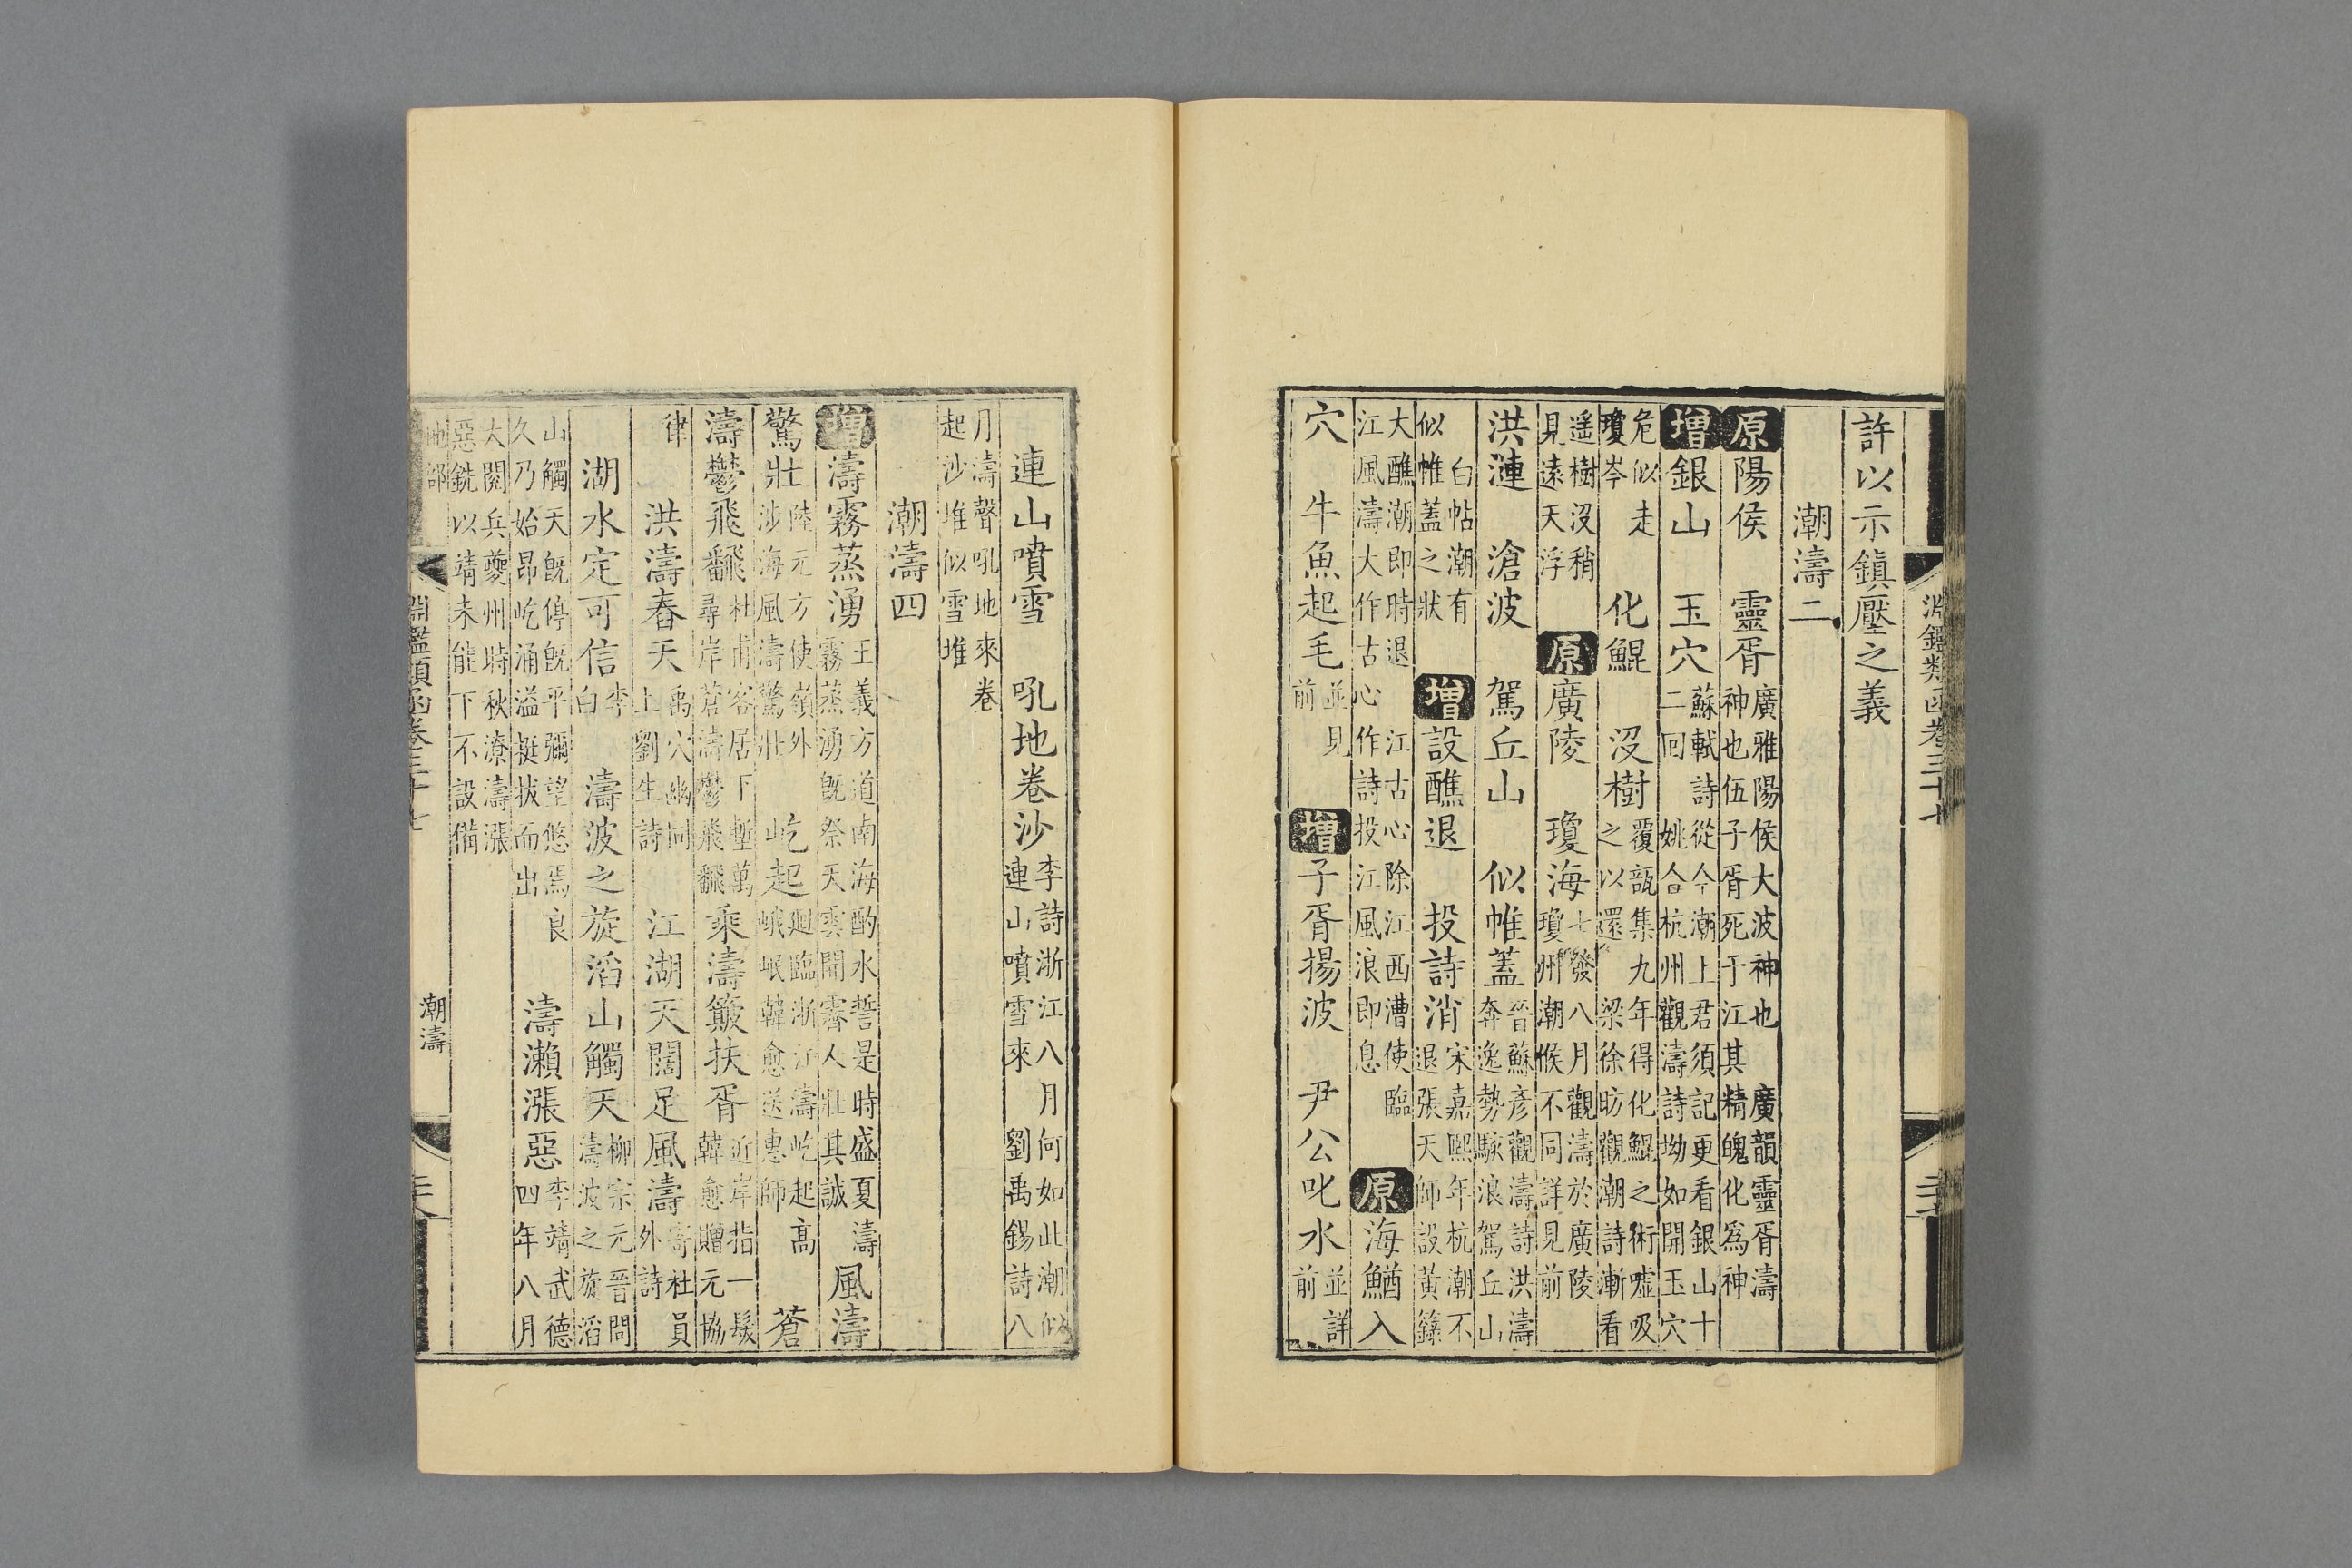 淵鑑類函卷三十七
許以示鎮壓之義
潮濤二
原陽侯　靈胥廣雅陽侯大波神也　廣韻靈胥濤神也伍子胥死于江其精魄化爲神
增銀山　玉穴蘇軾詩從今潮上君須記更看銀山十二回　姚合杭州觀濤詩坳如開玉穴
危似走瓊岑　化鯤　没樹覆瓿集九年得化鯤之術噓吸之以還　梁徐昉觀潮詩漸看
遥樹没稍見遠天浮　原廣陵　瓊海七發八月觀濤於廣陵瓊州潮候不同詳見前
洪漣　滄波　駕丘山　似帷蓋晉蘇彦觀濤詩洪濤奔逸勢駭浪駕丘山
白帖潮有似帷蓋之狀　增設醮退　投詩消宋嘉熙年杭潮不退張天師設黄籙
大醮潮即時退　江古心除江西漕使臨江風濤大作古心作詩投江風浪即息　原海鰌入
穴　牛魚起毛並見前　增子胥揚波　尹公叱水並詳前
連山噴雪　吼地卷沙李詩浙江八月何如此潮似連山噴雪來　劉禹錫詩八
月濤聲吼地來卷起沙堆似雪堆
潮濤四
增濤霧蒸湧王義方道南海酌水誓是時盛夏濤霧蒸湧旣祭天雲開霽人壯其誠　風濤
驚壯陸元方使嶺外涉海風濤驚壯　屹起廻臨浙江濤屹起高峨岷韓愈送惠師　蒼
濤鬱飛翻杜甫客居下塹萬尋岸蒼濤鬱飛翻　乘濤簸扶胥近岸指一髮韓愈贈元協
律　洪濤舂天禹穴幽何上劉生詩　江湖天闊足風濤寄杜員外詩
湖水定可信李白　濤波之旋滔山觸天柳宗元晉問濤波之旋滔
山觸天旣停旣平彌望悠焉良久乃始昂屹涌溢挺拔而出　濤瀨漲惡李靖武德四年八月
大閱兵夔州時秋潦濤漲惡銑以靖未能下不設備
地部
淵鑑類函卷三十七
潮濤